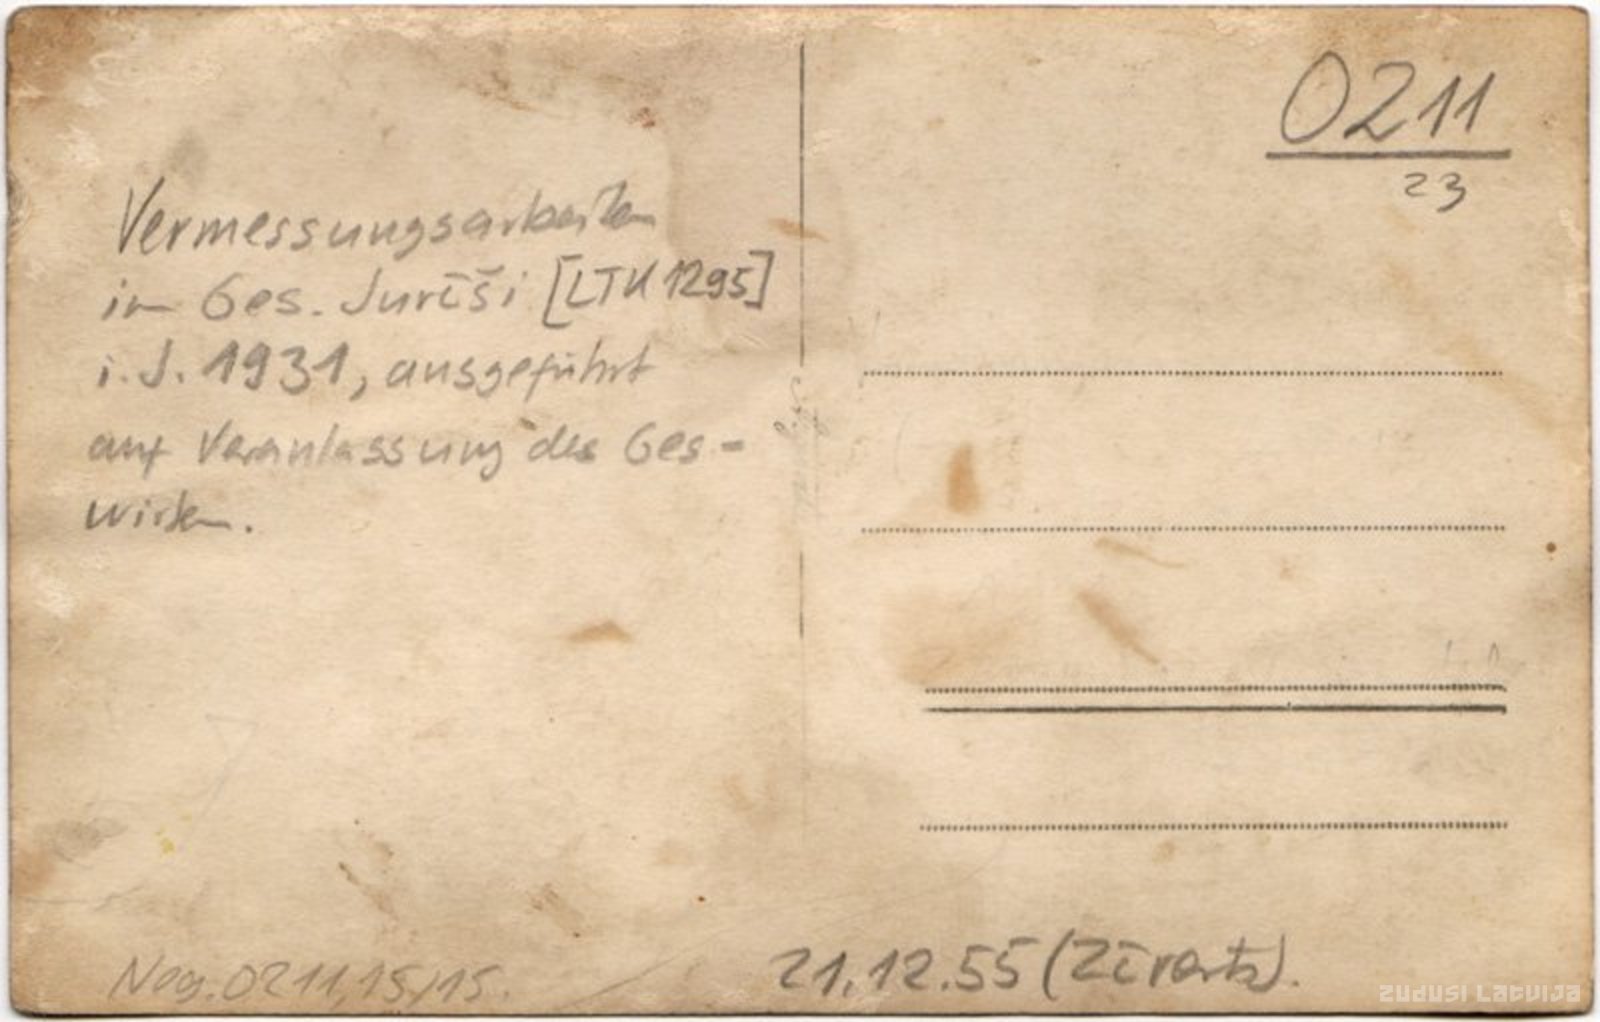 0211
23
Vermessungsarbeiten
im Ges. Jurīši [LTK 1295]
i. J. 1931, ausgeführt
auf Veranlassung des Ges-
wirten.
Neg. 0211, 15/15.
21.12.55 (Zīverts).
ZUDUSI LATVIJA